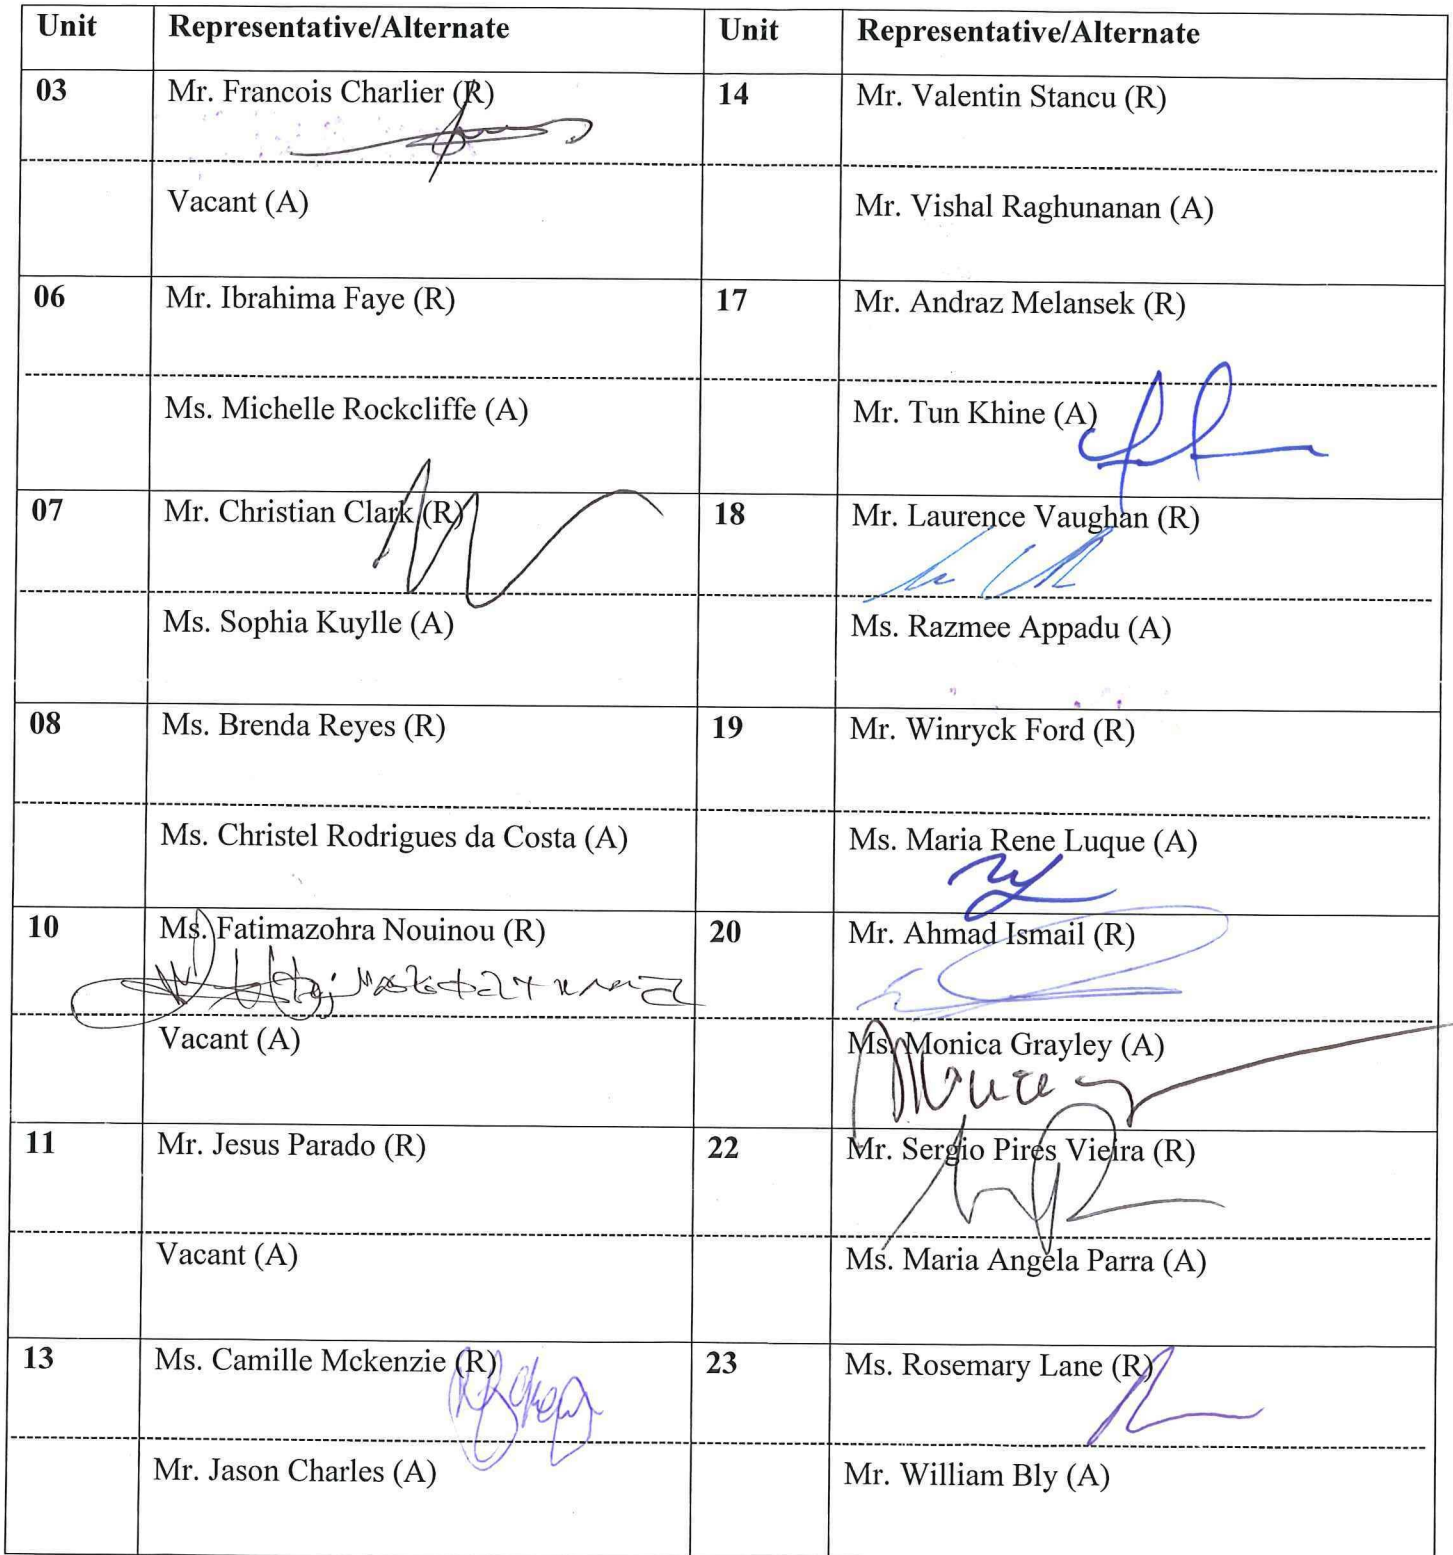 Unit Representative/Alternate Unit Representative/Alternate
03 Mr. Francois Charlier (R) 14 Mr. Valentin Stancu (R)
Vacant (A) Mr. Vishal Raghunanan (A)
06 Mr. Ibrahima Faye (R) 17 Mr. Andraz Melansek (R)
Ms. Michelle Rockcliffe (A) Mr. Tun Khine (A)
07 Mr. Christian Clark (R) 18 Mr. Laurence Vaughan (R)
Ms. Sophia Kuylle (A) Ms. Razmee Appadu (A)
08 Ms. Brenda Reyes (R) 19 Mr. Winryck Ford (R)
Ms. Christel Rodrigues da Costa (A) Ms. Maria Rene Luque (A)
10 Ms. Fatimazohra Nouinou (R) 20 Mr. Ahmad Ismail (R)
Vacant (A) Ms. Monica Grayley (A)
11 Mr. Jesus Parado (R) 22 Mr. Sergio Pires Vieira (R)
Vacant (A) Ms. Maria Angela Parra (A)
13 Ms. Camille Mckenzie (R) 23 Ms. Rosemary Lane (R)
Mr. Jason Charles (A) Mr. William Bly (A)